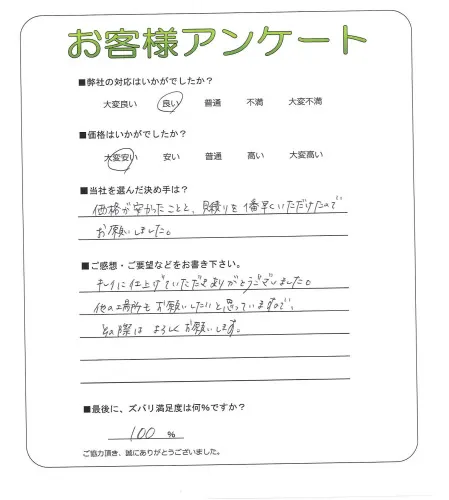 お客様アンケート
■弊社の対応はいかがでしたか?
大変良い 良い 普通 不満 大変不満
■価格はいかがでしたか?
大変安い 安い 普通 高い 大変高い
■当社を選んだ決め手は?
価格が安かったことと、見積りを1番早くいただけたので
お願いしました。
■ご感想・ご要望などをお書き下さい。
キレイに仕上げていただきありがとうございました。
他の場所もお願いしたいと思っていますので、
その際はよろしくお願いします。
■最後に、ズバリ満足度は何%ですか?
100 %
ご協力頂き、誠にありがとうございました。